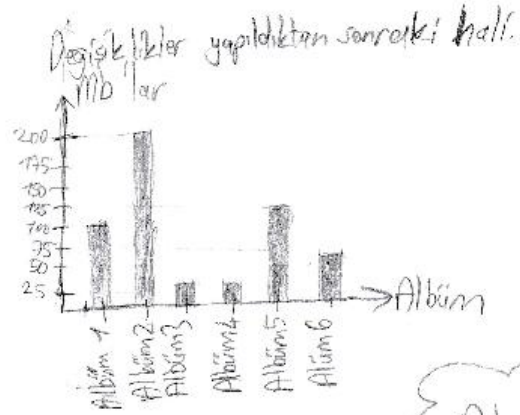 Değişiklikler yapıldıktan sonraki hali.
Mb'lar
200
175
150
125
100
75
50
25
Albüm
Albüm 1
Albüm2
Albüm3
Albüm4
Albüm5
Alüm6